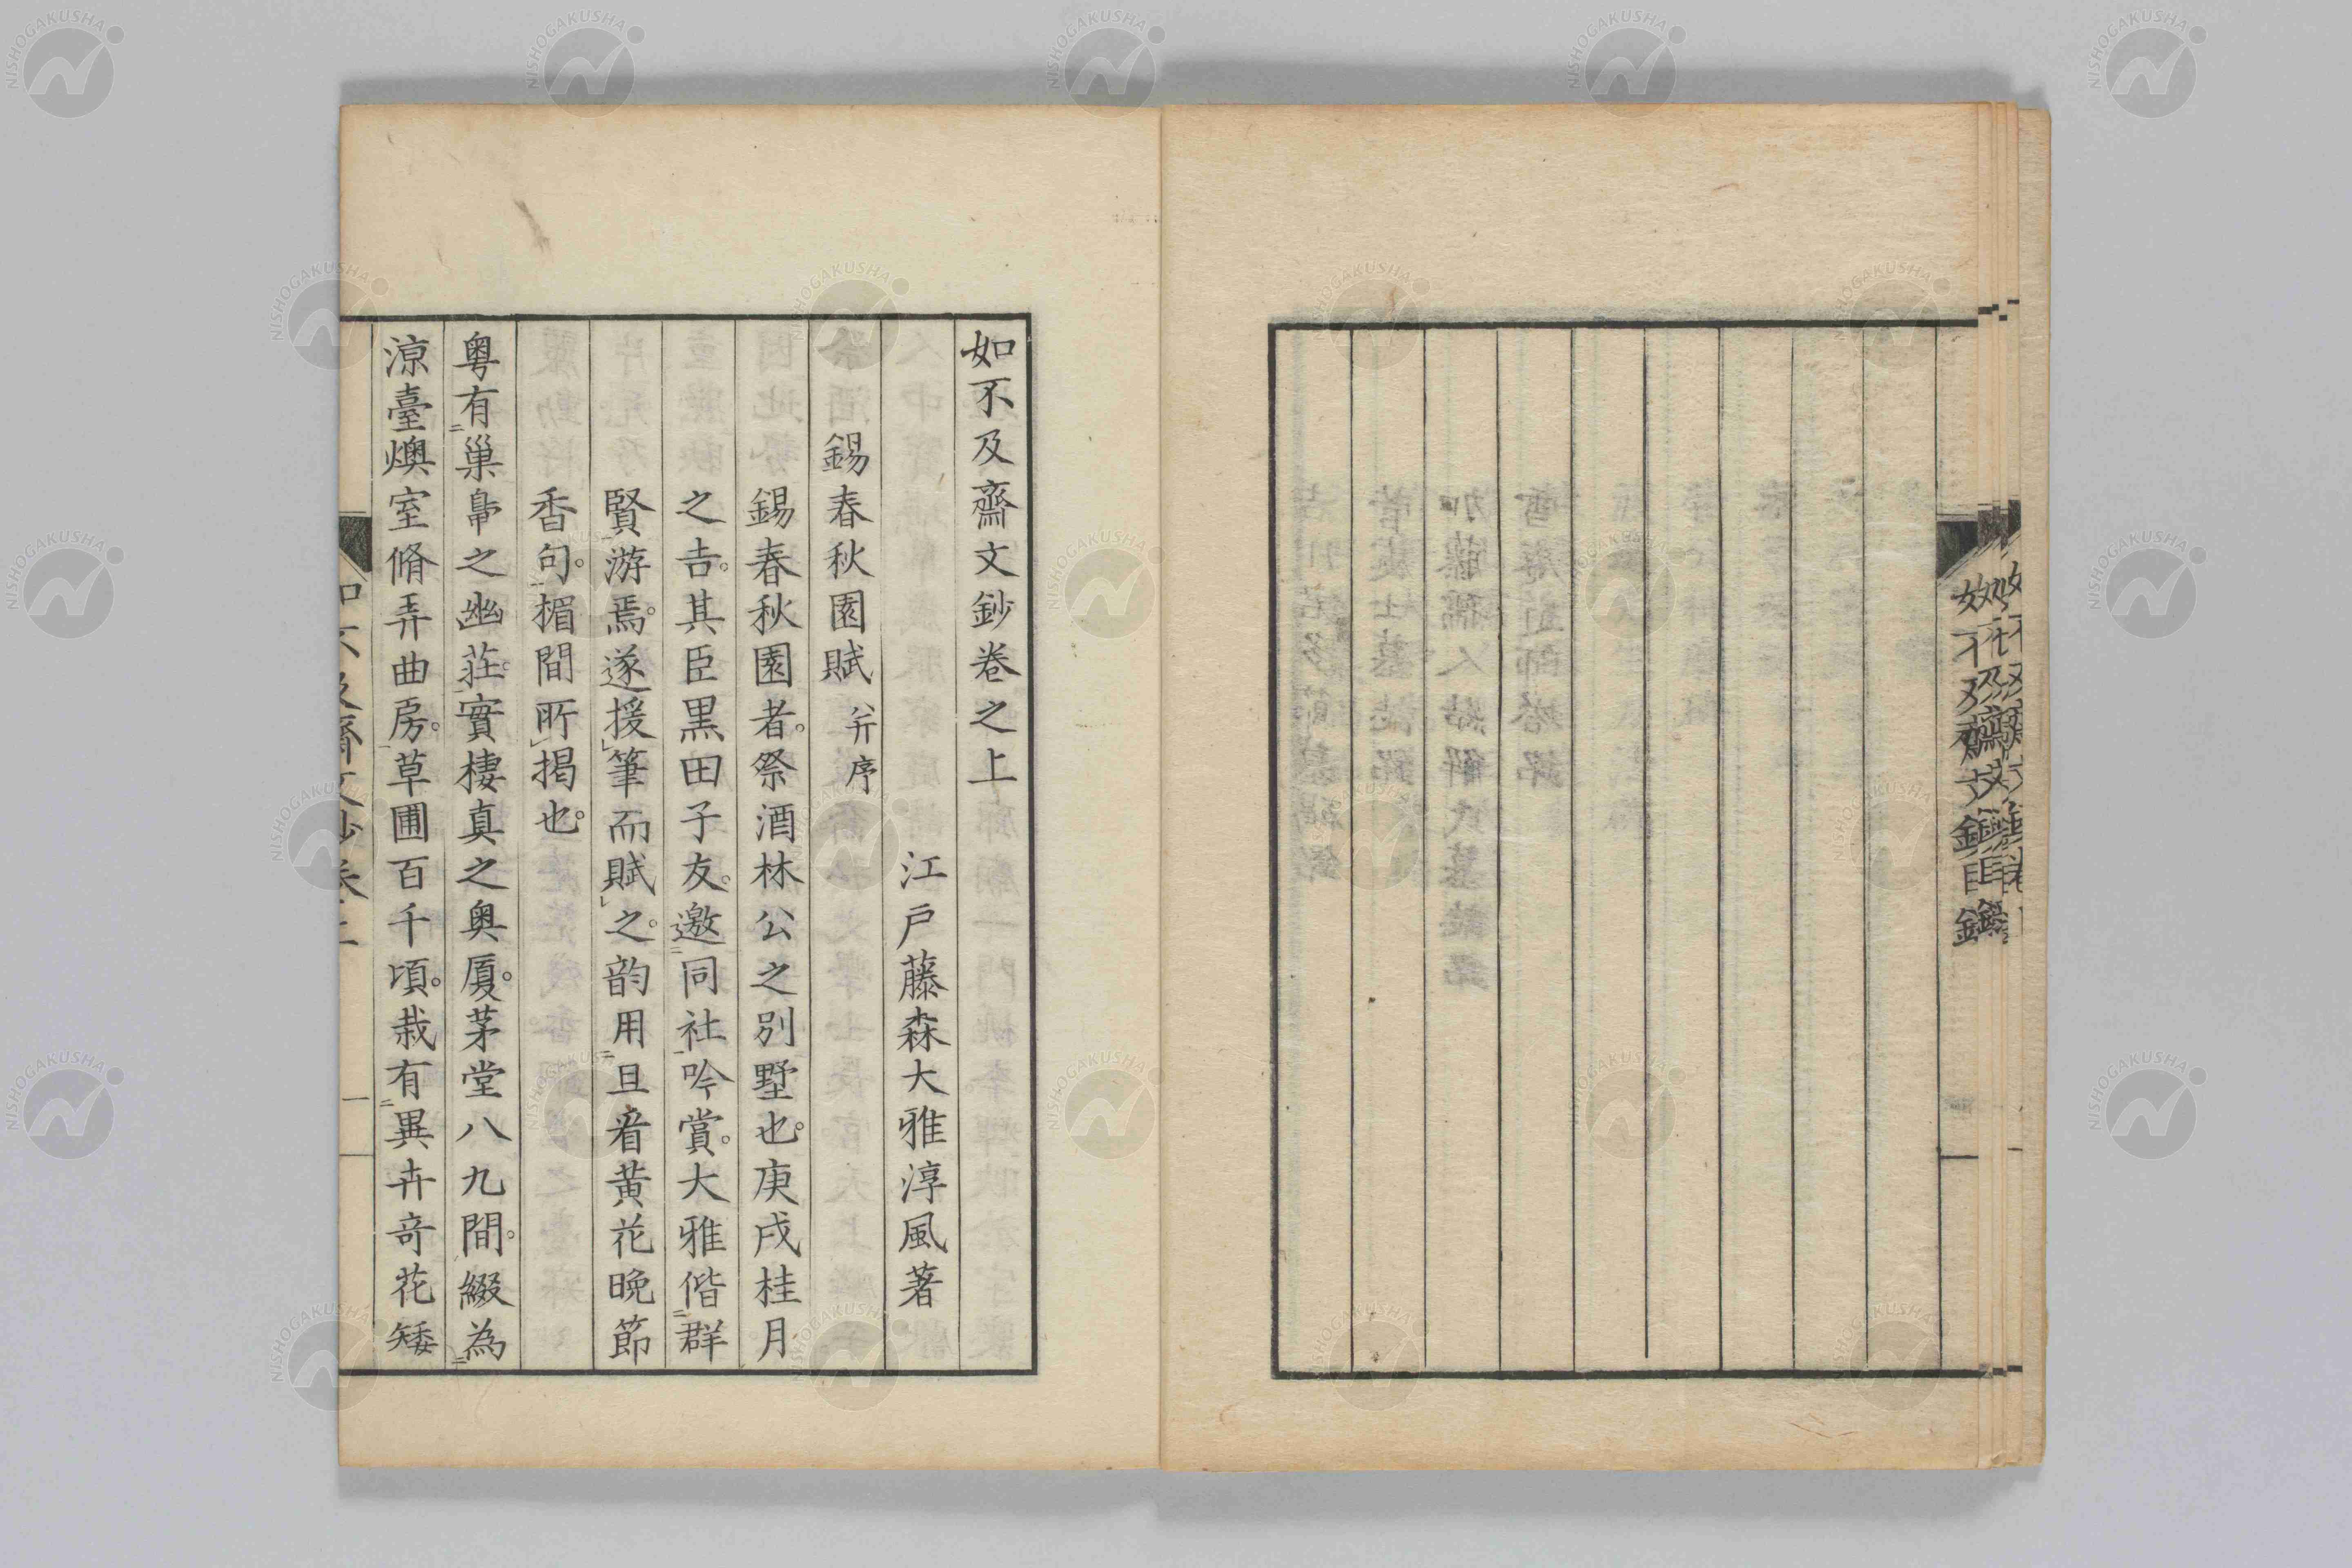 如不及齋文鈔卷之上
江戸藤森大雅淳風著
錫春秋園賦 并序
錫春秋園者。祭酒林公之別墅也。庚戌桂月
之吉。其臣黒田子友。邀同社吟賞。大雅偕群
賢游焉。遂援筆而賦之。韵用且看黄花晩節
香句。楣間所掲也。
粤有巢皐之幽莊。實棲真之奥厦。茅堂八九間。綴為
涼臺燠室脩弄曲房。草圃百千頃。栽有異卉奇花矮
如不及齋文鈔卷上 一
如不及齋文鈔目錄
NISHOGAKUSHA